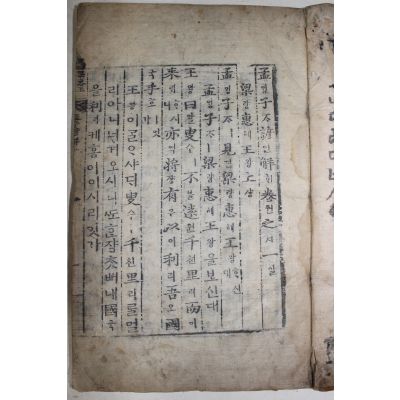 孟ᄆᆡᆼ子ᄌᆞ諺언解ᄒᆡ卷권之지一일
梁량惠혜王왕上샹
孟ᄆᆡᆼ子ᄌᆞㅣ見견梁량惠혜王왕ᄒᆞ신대
孟ᄆᆡᆼ子ᄌᆞㅣ梁량惠혜王왕을보신대
王왕曰왈叟수ㅣ不블遠원千쳔里리而이
來ᄅᆡᄒᆞ시니亦역將쟝有유以이利리吾오國
국乎호잇가
王왕이ᄀᆞᆯᄋᆞ샤ᄃᆡ叟수ㅣ千쳔里리ᄅᆞᆯ멀
리아니너겨오시니ᄯᅩᄒᆞᆫ쟝ᄎᆞᆺᄡᅥ내國국
을利리케홈이이시리잇가